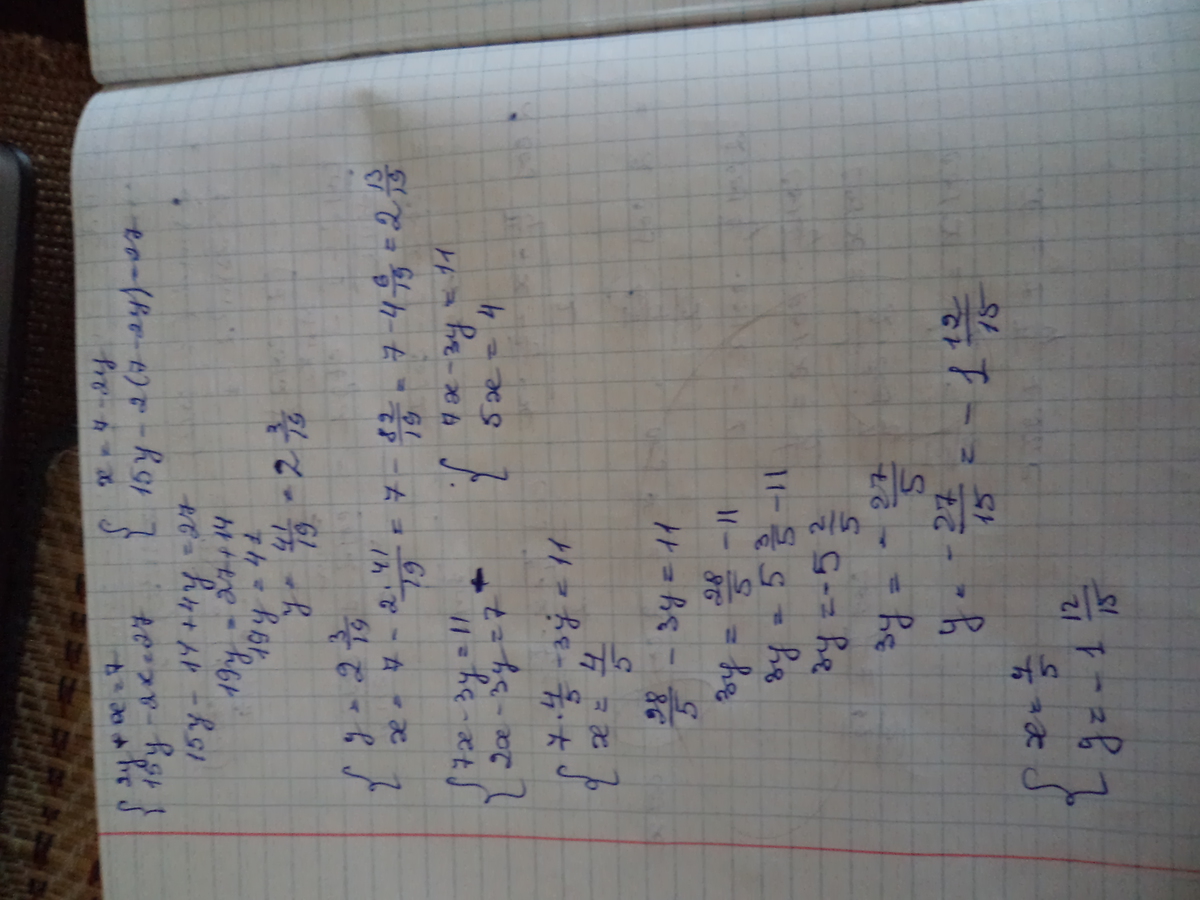 { 2y + x = 7
15y - 2x = 27
{ x = 7 - 2y
15y - 2(7 - 2y) = 27
15y - 14 + 4y = 27
19y = 27 + 14
19y = 41
y = 41/19 = 2 3/19
{ y = 2 3/19
x = 7 - 2·41/19 = 7 - 82/19 = 7 - 4 6/19 = 2 13/19
{ 7x - 3y = 11
2x - 3y = 7
{ 7x - 3y = 11
5x = 4
{ 7·4/5 - 3y = 11
x = 4/5
28/5 - 3y = 11
3y = 28/5 - 11
3y = 5 3/5 - 11
3y = -5 2/5
3y = - 27/5
y = - 27/15 = - 1 12/15
{ x = 4/5
y = - 1 12/15